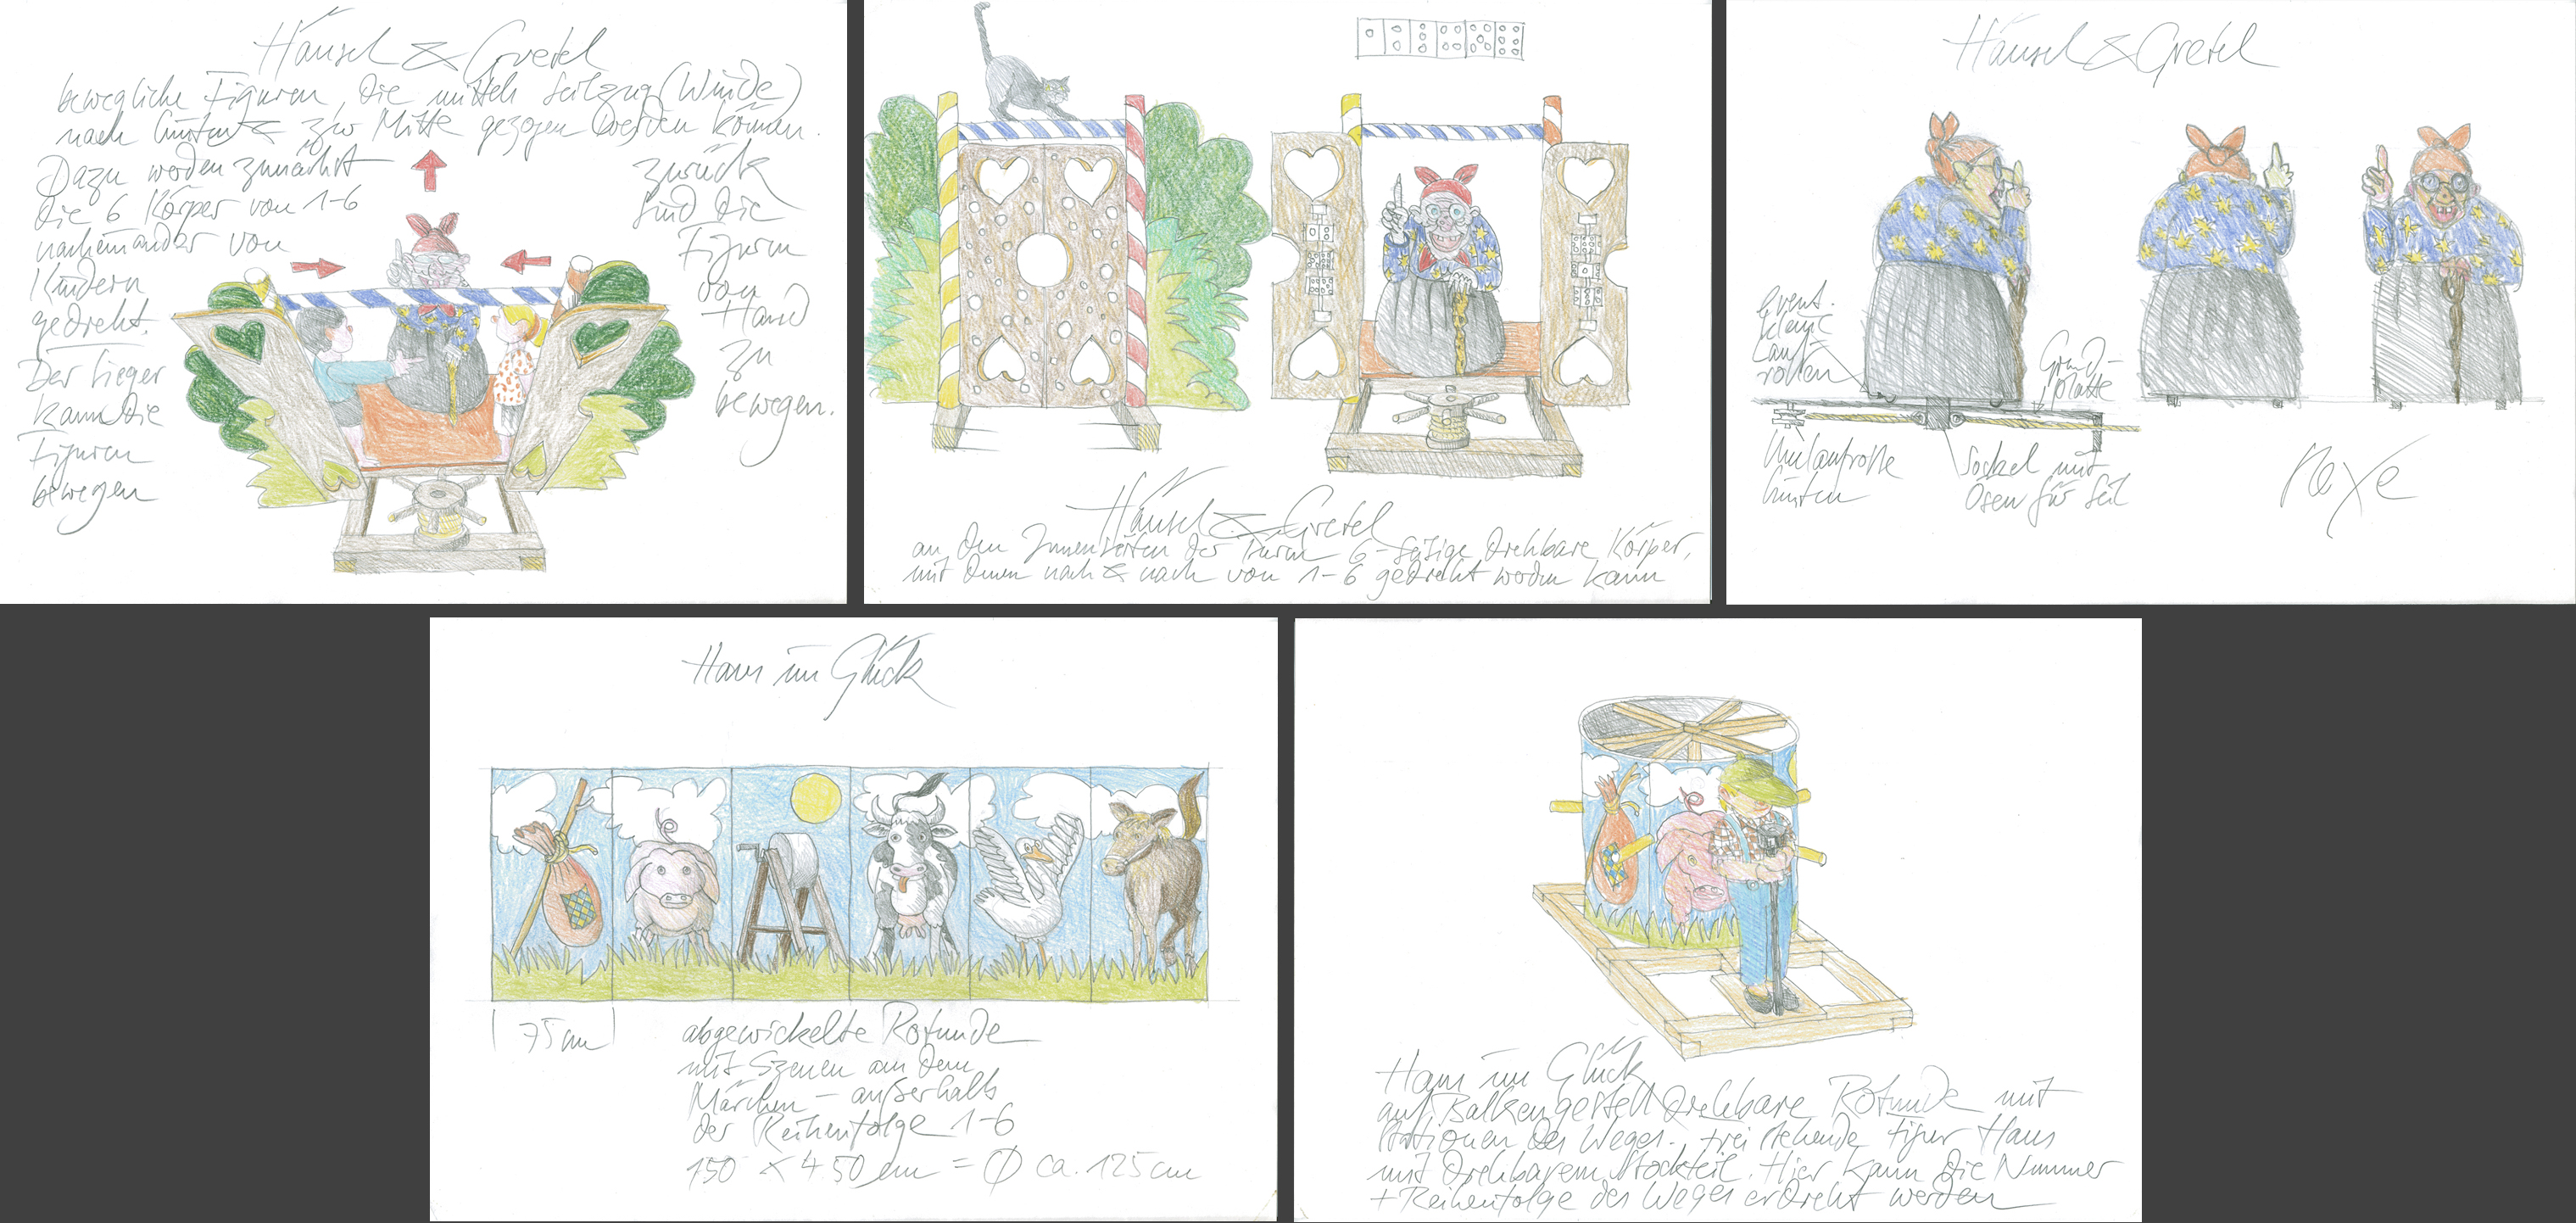 Hänsel & Gretel
bewegliche Figuren, die mittels Seilzug (Winde)
nach hinten & zur Mitte gezogen werden können.
Dazu werden zunächst
die 6 Körper von 1-6
nacheinander von
Kindern
gedreht.
Der Sieger
kann die
Figuren
bewegen
zurück
sind die
Figuren
von
Hand
zu
bewegen.
Hänsel & Gretel
an den Innenseiten der Türen 6-seitige drehbare Körper,
mit denen nach & nach von 1-6 gedreht werden kann
Hänsel & Gretel
event.
kleine
Lauf-
rollen
Grund-
platte
Umlaufrolle
hinten
Sockel mit
Ösen für Seil
Hexe
Hans im Glück
75 cm
abgewickelte Rotunde
mit Szenen aus dem
Märchen - außerhalb
der Reihenfolge 1-6
150 x 450 cm = Ø ca. 125 cm
Hans im Glück
auf Balkengestell drehbare Rotunde mit
Stationen des Weges. frei stehende Figur Hans
mit drehbarem Stockteil. Hier kann die Nummer
+ Reihenfolge des Weges erdreht werden